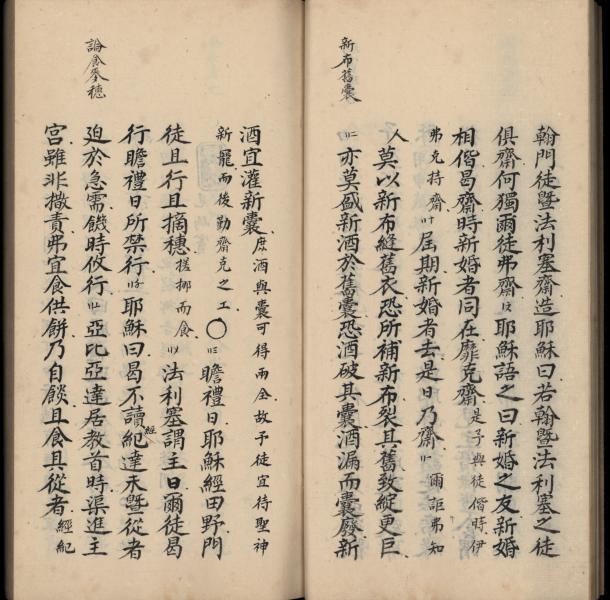 新布舊囊
翰門徒暨法利塞齋造耶穌曰若翰暨法利塞之徒
俱齋何獨爾徒弗齋耶穌語之曰新婚之友新婚
相偕曷齋時新婚者同在靡克齋是予與徒偕時伊
弗克持齋屆期新婚者去是日乃齋爾詎弗知
人莫以新布縫舊衣恐所補新布裂其舊致綻更巨
亦莫盛新酒於舊囊恐酒破其囊酒漏而囊廢新
論食麥穗
酒宜灌新囊庶酒與囊可得兩全故予徒宜待聖神
新寵而後勤齋克之工〇瞻禮日耶穌經田野門
徒且行且摘穗搓挪而食法利塞謂主曰爾徒曷
行瞻禮日所禁行耶穌曰曷不讀經紀達未暨從者
迫於急需饑時攸行亞比亞達居教首時渠進主
宮雖非撒責弗宜食供餅乃自餤且食其從者經紀